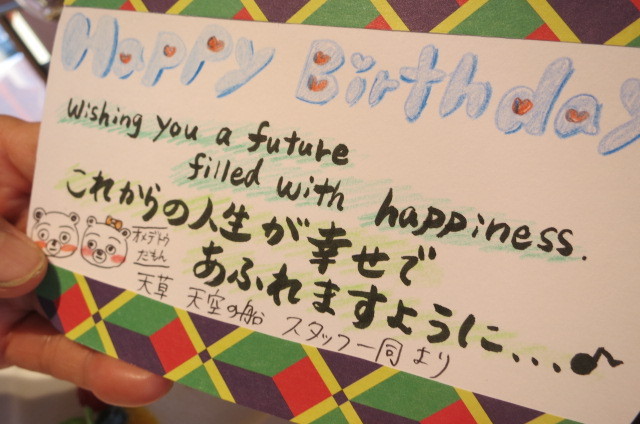 Happy Birthday
Wishing you a future
filled with happiness.
これからの人生が幸せで
あふれますように...♪
オメデトウ
だもん
天草 天空の船 スタッフ一同より